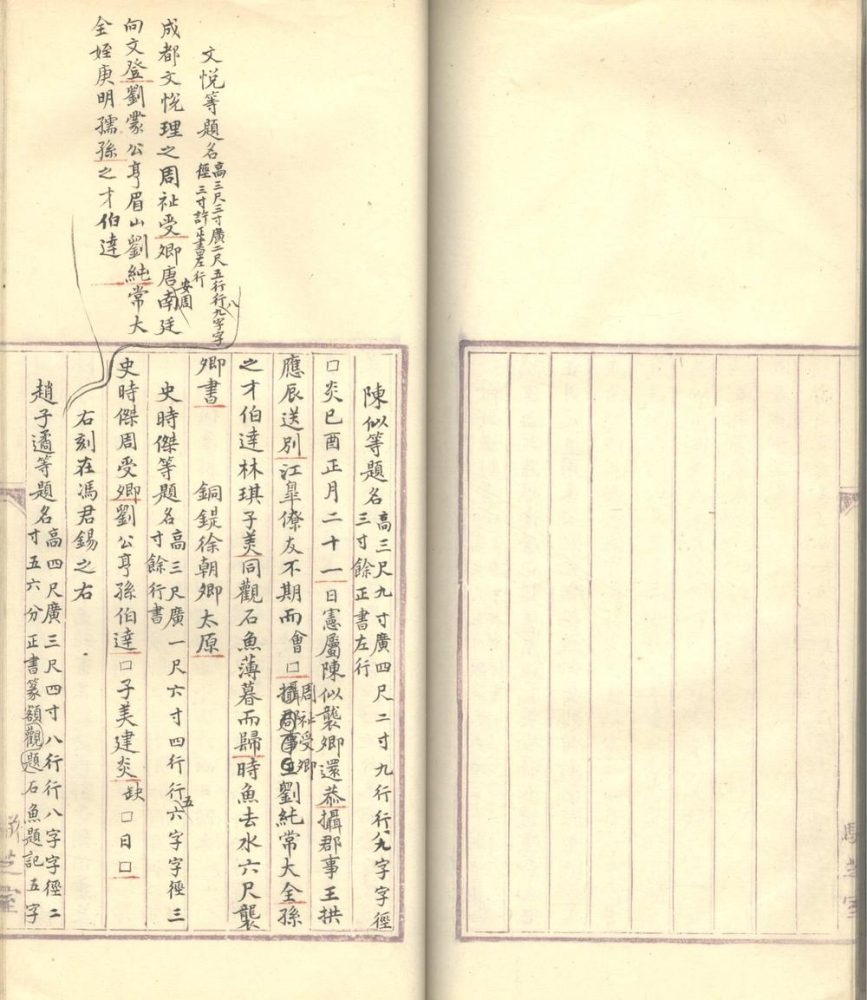 文悅等題名高三尺三寸廣二尺五行行九字字
徑三寸許正書左行
八
成都文悅理之周祉受卿唐南廷
安周
向文登劉蒙公亨眉山劉純常大
全姪庚明孺孫之才伯達
陳似等題名高三尺九寸廣四尺二寸九行行八九字字徑
三寸餘正書左行
口炎已酉正月二十一日憲屬陳似襲卿還恭攝郡事王拱
應辰送別江臯僚友不期而會口
周祉受卿
劉純常大全孫
之才伯達林琪子美同觀石魚薄暮而歸時魚去水六尺襲
卿書 銅鍉徐朝卿太原
史時傑等題名高三尺廣一尺六寸四行行六字字徑三
寸餘行書
五
史時傑周受卿劉公亨孫伯達口子美建炎缺口日口
右刻在馮君錫之右
趙子遹等題名高四尺廣三尺四寸八行行八字字徑二
寸五六分正書篆額觀題石魚題記五字
芝室